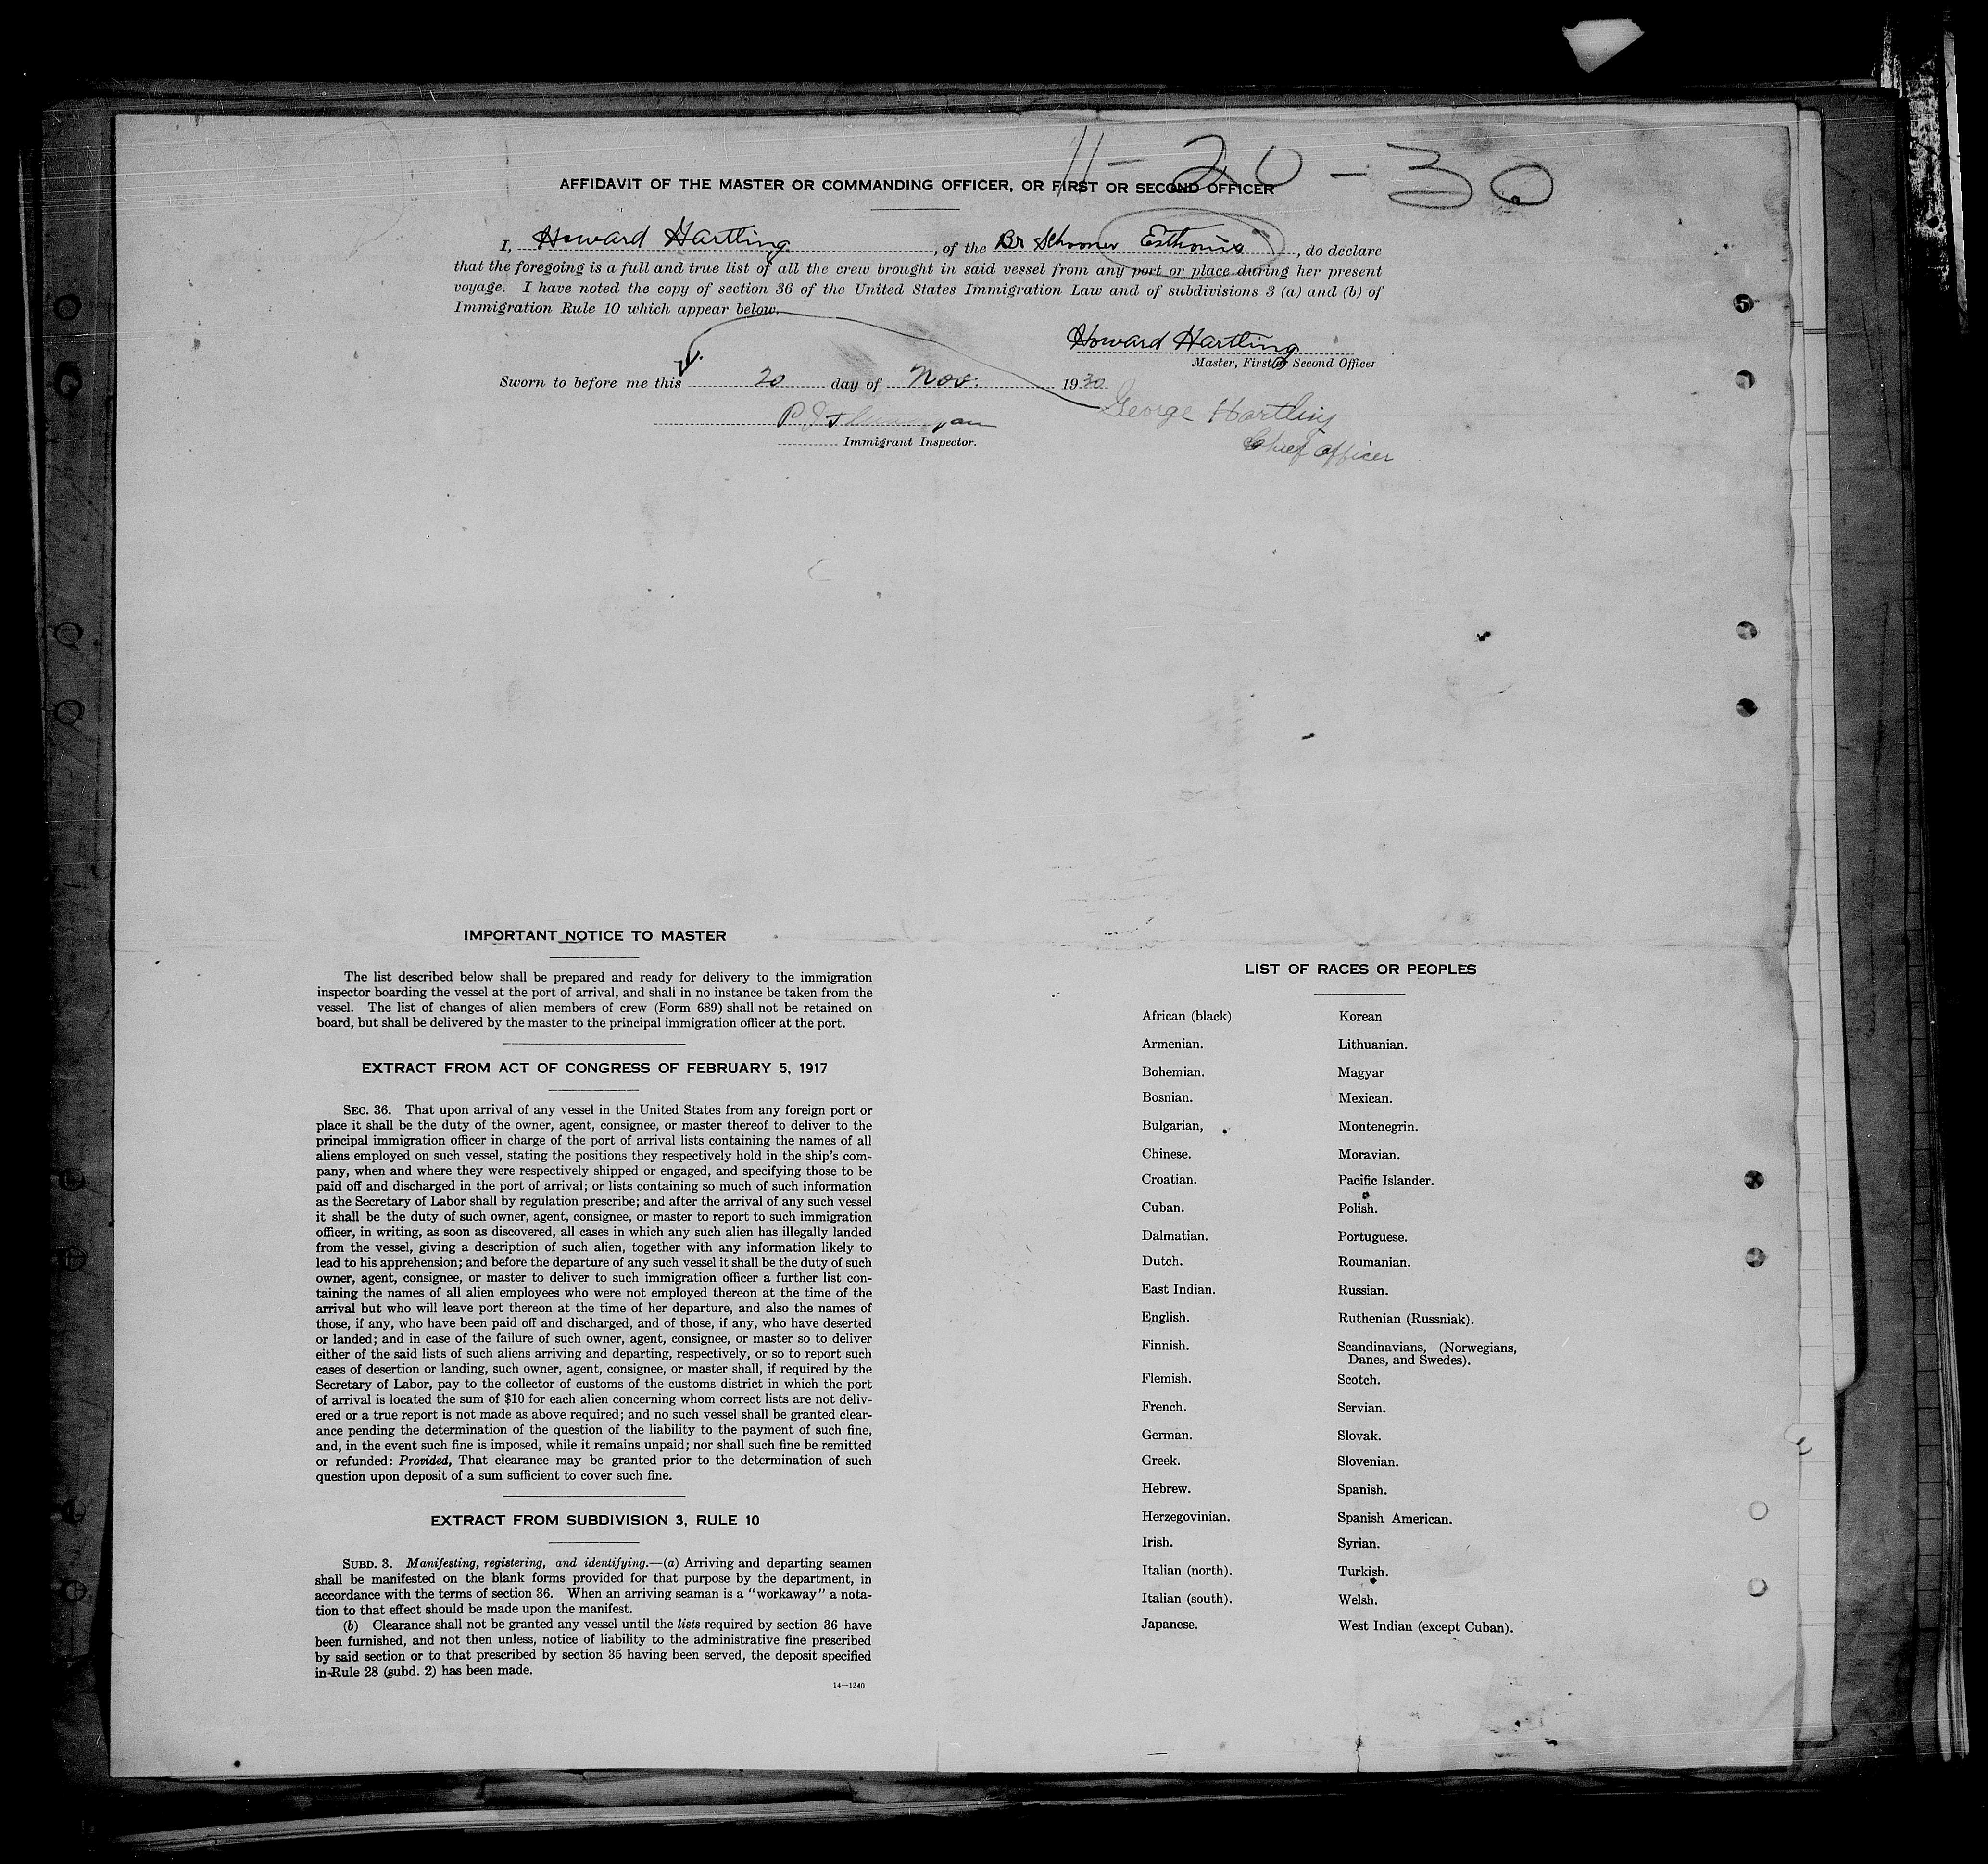 11-20-30
AFFIDAVIT OF THE MASTER OR COMMANDING OFFICER, OR FIRST OR SECOND OFFICER
I, Howard Hartling, of the Br Schooner Esthonia, do declare
that the foregoing is a full and true list of all the crew brought in said vessel from any port or place during her present
voyage. I have noted the copy of section 36 of the United States Immigration Law and of subdivisions 3 (a) and (b) of
Immigration Rule 10 which appear below.
Howard Hartling
Master, First or Second Officer
Sworn to before me this 20 day of Nov. 1930
George Hartling
Chief Officer
Immigrant Inspector.
IMPORTANT NOTICE TO MASTER
The list described below shall be prepared and ready for delivery to the immigration
inspector boarding the vessel at the port of arrival, and shall in no instance be taken from the
vessel. The list of changes of alien members of crew (Form 689) shall not be retained on
board, but shall be delivered by the master to the principal immigration officer at the port.
EXTRACT FROM ACT OF CONGRESS OF FEBRUARY 5, 1917
SEC. 36. That upon arrival of any vessel in the United States from any foreign port or
place it shall be the duty of the owner, agent, consignee, or master thereof to deliver to the
principal immigration officer in charge of the port of arrival lists containing the names of all
aliens employed on such vessel, stating the positions they respectively hold in the ship's com-
pany, when and where they were respectively shipped or engaged, and specifying those to be
paid off and discharged in the port of arrival; or lists containing so much of such information
as the Secretary of Labor shall by regulation prescribe; and after the arrival of any such vessel
it shall be the duty of such owner, agent, consignee, or master to report to such immigration
officer, in writing, as soon as discovered, all cases in which any such alien has illegally landed
from the vessel, giving a description of such alien, together with any information likely to
lead to his apprehension; and before the departure of any such vessel it shall be the duty of such
owner, agent, consignee, or master to deliver to such immigration officer a further list con-
taining the names of all alien employees who were not employed thereon at the time of the
arrival but who will leave port thereon at the time of her departure, and also the names of
those, if any, who have been paid off and discharged, and of those, if any, who have deserted
or landed; and in case of the failure of such owner, agent, consignee, or master so to deliver
either of the said lists of such aliens arriving and departing, respectively, or so to report such
cases of desertion or landing, such owner, agent, consignee, or master shall, if required by the
Secretary of Labor, pay to the collector of customs of the customs district in which the port
of arrival is located the sum of $10 for each alien concerning whom correct lists are not deliv-
ered or a true report is not made as above required; and no such vessel shall be granted clear-
ance pending the determination of the question of the liability to the payment of such fine,
and, in the event such fine is imposed, while it remains unpaid; nor shall such fine be remitted
or refunded: Provided, That clearance may be granted prior to the determination of such
question upon deposit of a sum sufficient to cover such fine.
EXTRACT FROM SUBDIVISION 3, RULE 10
SUBD. 3. Manifesting, registering, and identifying.—(a) Arriving and departing seamen
shall be manifested on the blank forms provided for that purpose by the department, in
accordance with the terms of section 36. When an arriving seaman is a "workaway" a nota-
tion to that effect should be made upon the manifest.
(b) Clearance shall not be granted any vessel until the lists required by section 36 have
been furnished, and not then unless, notice of liability to the administrative fine prescribed
by said section or to that prescribed by section 35 having been served, the deposit specified
in Rule 28 (subd. 2) has been made.
14—1240
LIST OF RACES OR PEOPLES
African (black)
Armenian.
Bohemian.
Bosnian.
Bulgarian,
Chinese.
Croatian.
Cuban.
Dalmatian.
Dutch.
East Indian.
English.
Finnish.
Flemish.
French.
German.
Greek.
Hebrew.
Herzegovinian.
Irish.
Italian (north).
Italian (south).
Japanese.
Korean
Lithuanian.
Magyar
Mexican.
Montenegrin.
Moravian.
Pacific Islander.
Polish.
Portuguese.
Roumanian.
Russian.
Ruthenian (Russniak).
Scandinavians, (Norwegians,
Danes, and Swedes).
Scotch.
Servian.
Slovak.
Slovenian.
Spanish.
Spanish American.
Syrian.
Turkish.
Welsh.
West Indian (except Cuban).